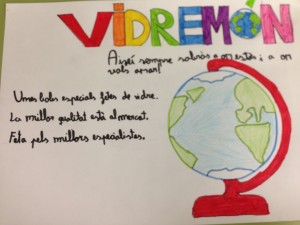 VIDREMÓN
Així sempre sabràs a on estàs i a on
vols anar!
Unes boles especials fetes de vidre.
La millor qualitat està al mercat.
Feta pels millors especialistes.